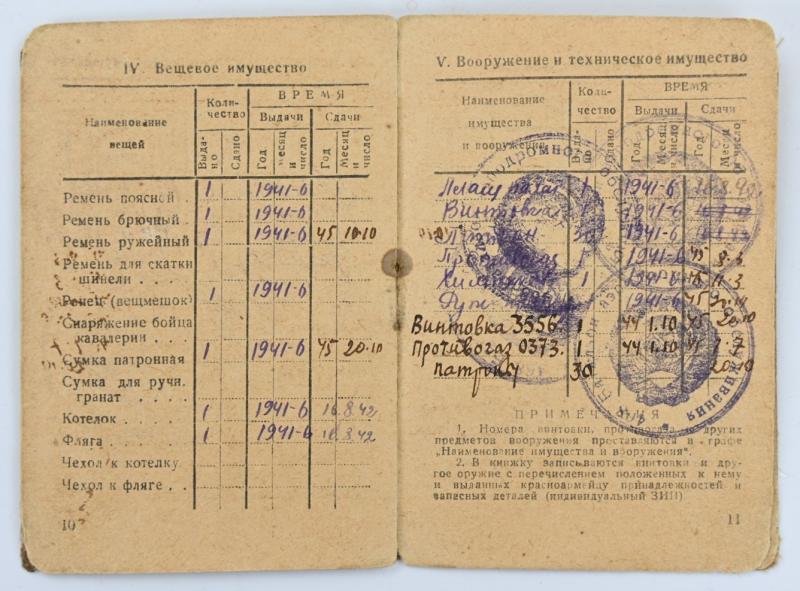 IV. Вещевое имущество
Наименование вещей
Количество
ВРЕМЯ
Выдачи
Сдачи
Выдано
Сдано
Год
Месяц и число
Год
Месяц и число
Ремень поясной . 1 1941-6
Ремень брючный . 1 1941-6
Ремень ружейный 1 1941-6 45 10-10
Ремень для скатки
шинели . . . .
Ранец (вещмешок) 1 1941-6
Снаряжение бойца
кавалерии . . .
Сумка патронная 1 1941-6 45 20-10
Сумка для ручн.
гранат . . . .
Котелок . . . . 1 1941-6 16.8.42
Фляга . . . . . 1 1941-6 16.8.42
Чехол к котелку .
Чехол к фляге . .
10
V. Вооружение и техническое имущество
Наименование
имущества
и вооружения
Количество
ВРЕМЯ
Выдачи
Сдачи
Выдано
Сдано
Год
Месяц и число
Год
Месяц и число
1 1941-6
Винтовка 1 1941-6
30 1941-6
1 1941-6 45
1
1941-6 45
Винтовка 3556. 1 44 1.10 45 20-10
Противогаз 0373. 1 44 1.10
Патроны 30 20-10
ПРИМЕЧАНИЯ
1. Номера винтовки, противогаза и других
предметов вооружения проставляются в графе
„Наименование имущества и вооружения“.
2. В книжку записываются винтовки и дру-
гое оружие с перечислением положенных к нему
и выданных красноармейцу принадлежностей и
запасных деталей (индивидуальный ЗИП)
11